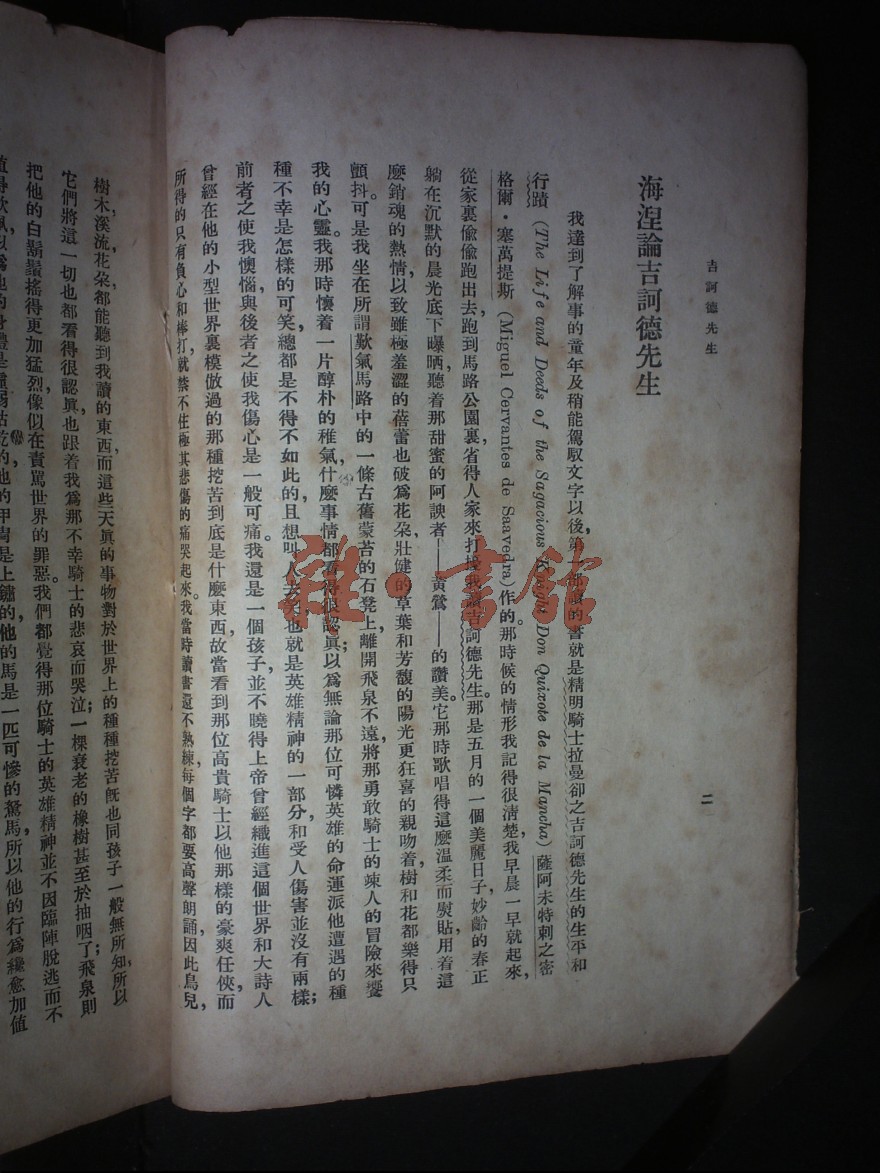 吉訶德先生
二
海涅論吉訶德先生
我達到了解事的童年及稍能駕馭文字以後，第一部讀的書就是精明騎士拉曼卻之吉訶德先生的生平和
行蹟（The Life and Deeds of the Sagacious Knight Don Quixote de la Mancha）薩阿未特刺之密
格爾·塞萬提斯（Miguel Cervantes de Saavedra）作的。那時候的情形我記得很清楚，我早晨一早就起來，
從家裏偷偷跑出去跑到馬路公園裏，省得人家來打擾我讀吉訶德先生。那是五月的一個美麗日子，妙齡的春正
躺在沉默的晨光底下曝晒，聽着那甜蜜的阿諛者——黃鶯——的讚美。它那時歌唱得這麽温柔而熨貼，用着這
麽銷魂的熱情，以致雖極羞澀的蓓蕾也破爲花朵，壯健的草葉和芳馥的陽光更狂喜的親吻着，樹和花都樂得只
顫抖。可是我坐在所謂歎氣馬路中的一條古舊蒙苔的石凳上，離開飛泉不遠，將那勇敢騎士的竦人的冒險來饗
我的心靈。我那時懷着一片醇朴的稚氣，什麽事情都看得很認眞；以爲無論那位可憐英雄的命運派他遭遇的種
種不幸是怎樣的可笑，總都是不得不如此的，且想叫人去笑也就是英雄精神的一部分，和受人傷害並沒有兩樣；
前者之使我懊惱，與後者之使我傷心是一般可痛。我還是一個孩子，並不曉得上帝曾經織進這個世界和大詩人
曾經在他的小型世界裏模倣過的那種挖苦到底是什麽東西，故當看到那位高貴騎士以他那樣的豪爽任俠，而
所得的只有負心和棒打，就禁不住極其悲傷的痛哭起來。我當時讀書還不熟練，每個字都要高聲朗誦，因此鳥兒，
樹木，溪流，花朵，都能聽到我讀的東西，而這些天眞的事物對於世界上的種種挖苦旣也同孩子一般無所知，所以
它們將這一切也都看得很認眞，也跟着我爲那不幸騎士的悲哀而哭泣；一棵衰老的橡樹甚至於抽咽了；飛泉則
把他的白鬍鬚搖得更加猛烈，像似在責罵世界的罪惡。我們都覺得那位騎士的英雄精神並不因臨陣脫逃而不
的他的甲冑是上鏽的，他的馬是一匹可慘的駑馬，所以他的行爲纔愈加值
雜·書館